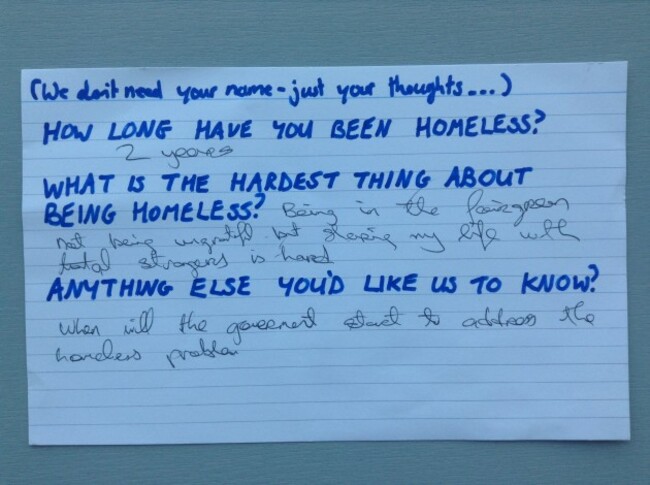 (We don't need your name - just your thoughts...)
HOW LONG HAVE YOU BEEN HOMELESS?
2 years
WHAT IS THE HARDEST THING ABOUT
BEING HOMELESS? Being in the fairgreen
not being ungratful but sharing my life with
total strangers is hard
ANYTHING ELSE YOU'D LIKE US TO KNOW?
When will the goverment start to address the
homeless problem